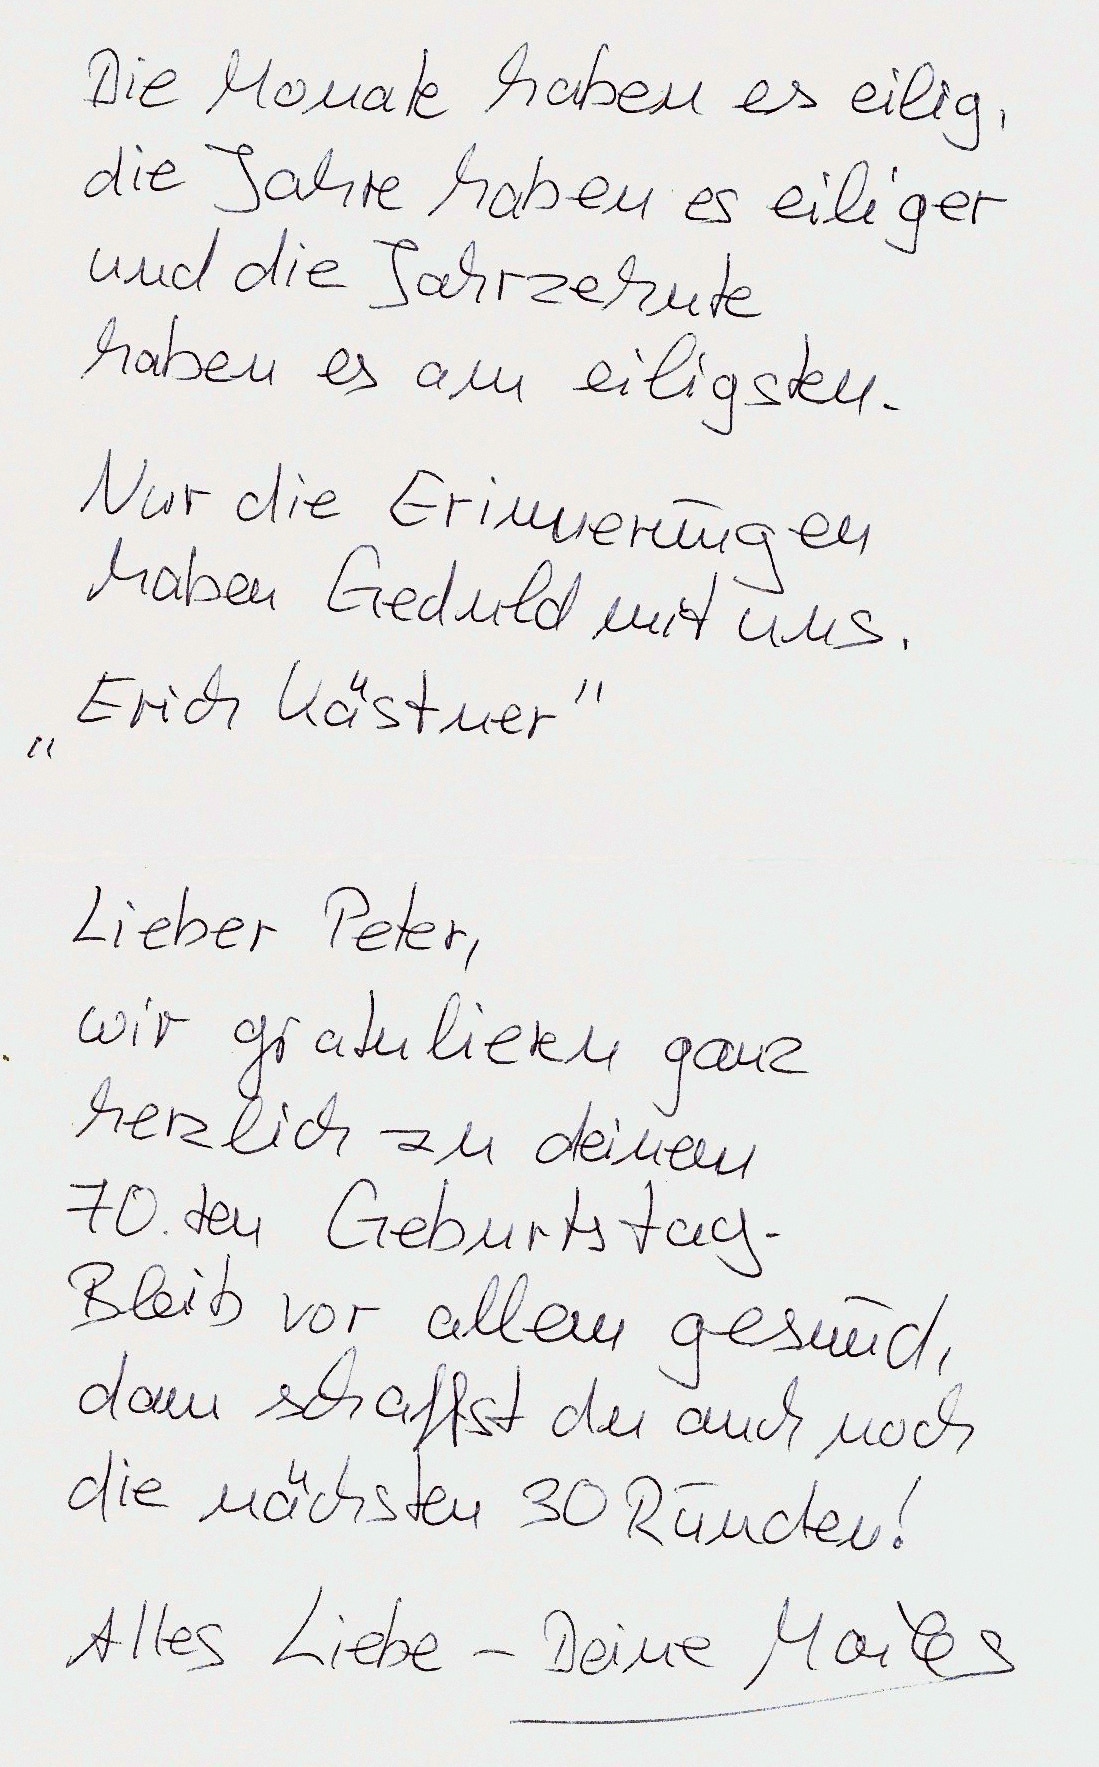 Die Monate haben es eilig,
die Jahre haben es eiliger
und die Jahrzehnte
haben es am eiligsten.
Nur die Erinnerungen
haben Geduld mit uns.
„Erich Kästner"
Lieber Peter,
wir gratulieren ganz
herzlich zu deinem
70.ten Geburtstag.
Bleib vor allem gesund,
dann schaffst du auch noch
die nächsten 30 Runden!
Alles Liebe – Deine